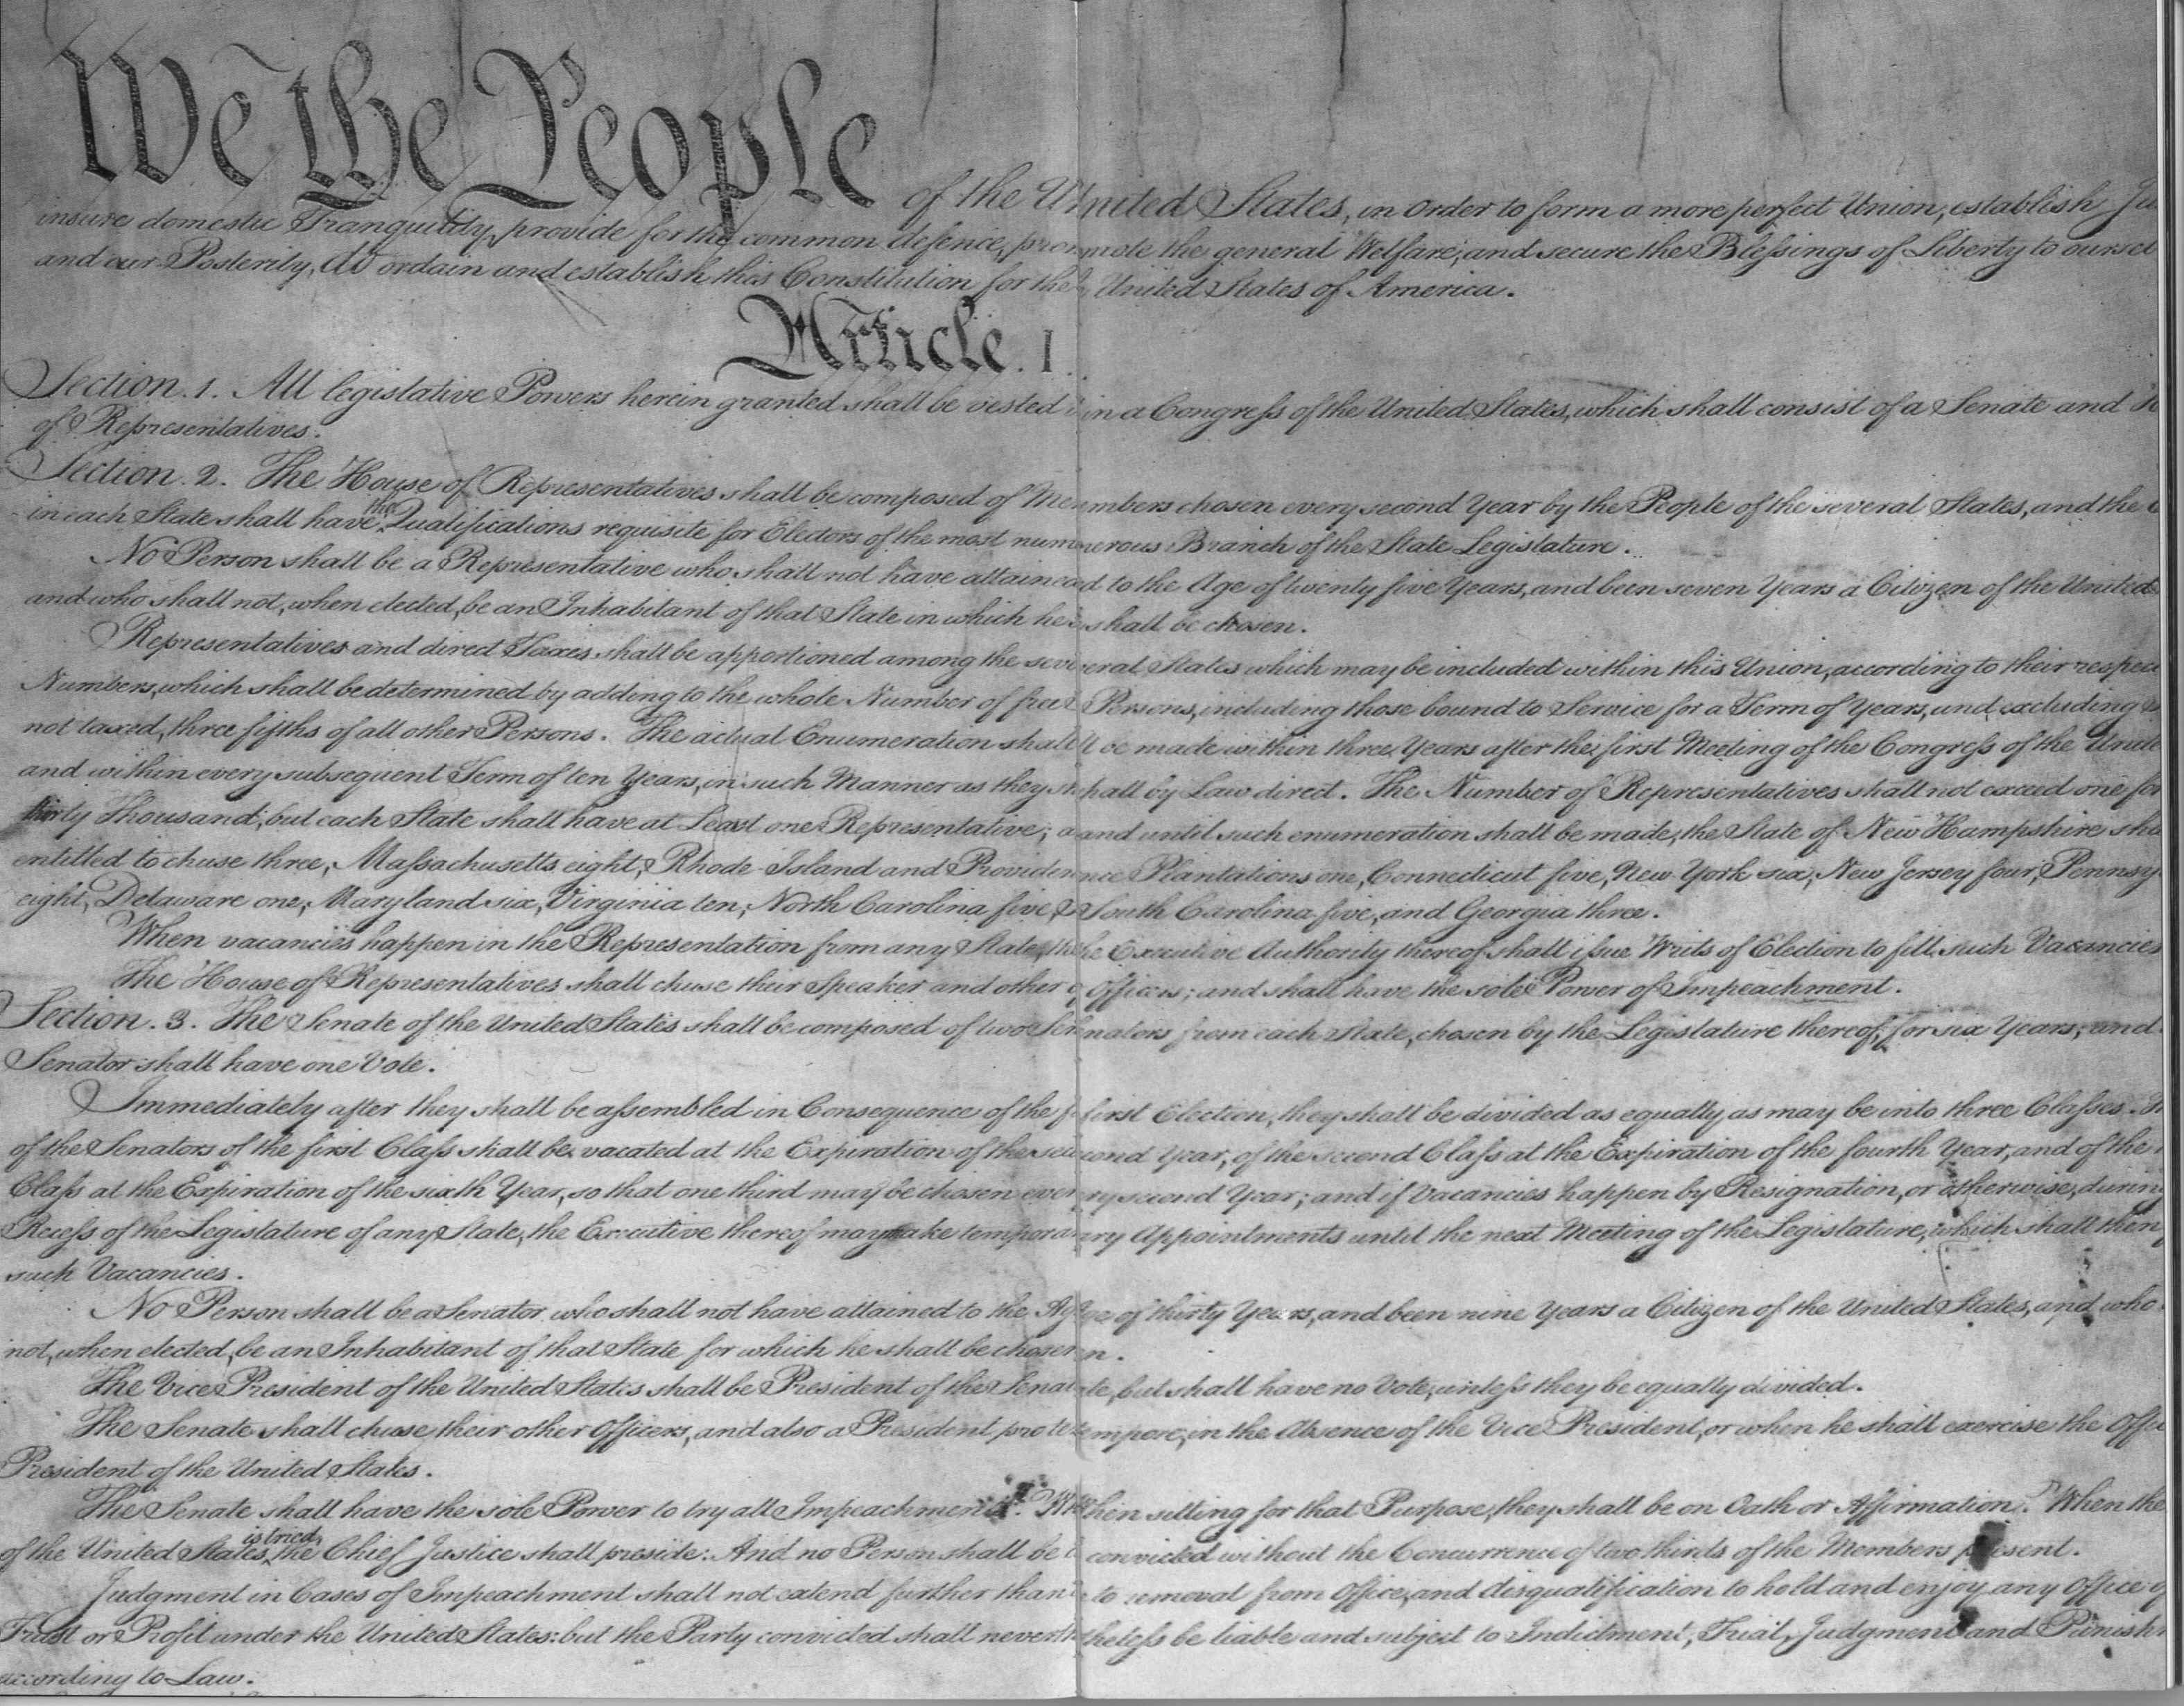 We the People of the United States, in Order to form a more perfect Union, establish Ju
insure domestic Tranquility, provide for the common defence, promote the general Welfare, and secure the Blessings of Liberty to oursel
and our Posterity, do ordain and establish this Constitution for the United States of America.
Article. I.
Section. 1. All legislative Powers herein granted shall be vested in a Congress of the United States, which shall consist of a Senate and
of Representatives.
Section. 2. The House of Representatives shall be composed of Members chosen every second Year by the People of the several States, and the
in each State shall have the Qualifications requisite for Electors of the most numerous Branch of the State Legislature.
No Person shall be a Representative who shall not have attained to the Age of twenty five Years, and been seven Years a Citizen of the United
and who shall not, when elected, be an Inhabitant of that State in which he shall be chosen.
Representatives and direct Taxes shall be apportioned among the several States which may be included within this Union, according to their respec
Numbers, which shall be determined by adding to the whole Number of free Persons, including those bound to Service for a Term of Years, and excluding
not taxed, three fifths of all other Persons. The actual Enumeration shall be made within three Years after the first Meeting of the Congress of the Unite
and within every subsequent Term of ten Years, in such Manner as they shall by Law direct. The Number of Representatives shall not exceed one for
thirty Thousand, but each State shall have at Least one Representative; and until such enumeration shall be made, the State of New Hampshire sha
entitled to chuse three, Massachusetts eight, Rhode-Island and Providence Plantations one, Connecticut five, New-York six, New Jersey four, Pennsy
eight, Delaware one, Maryland six, Virginia ten, North Carolina five, South Carolina five, and Georgia three.
When vacancies happen in the Representation from any State, the Executive Authority thereof shall issue Writs of Election to fill such Vacancies
The House of Representatives shall chuse their Speaker and other Officers; and shall have the sole Power of Impeachment.
Section. 3. The Senate of the United States shall be composed of two Senators from each State, chosen by the Legislature thereof, for six Years; and
Senator shall have one Vote.
Immediately after they shall be assembled in Consequence of the first Election, they shall be divided as equally as may be into three Classes.
of the Senators of the first Class shall be vacated at the Expiration of the second Year, of the second Class at the Expiration of the fourth Year, and of the
Class at the Expiration of the sixth Year, so that one third may be chosen every second Year; and if Vacancies happen by Resignation, or otherwise, during
Recess of the Legislature of any State, the Executive thereof may make temporary Appointments until the next Meeting of the Legislature, which shall then
such Vacancies.
No Person shall be a Senator who shall not have attained to the Age of thirty Years, and been nine Years a Citizen of the United States, and who
not, when elected, be an Inhabitant of that State for which he shall be chosen.
The Vice President of the United States shall be President of the Senate, but shall have no Vote, unless they be equally divided.
The Senate shall chuse their other Officers, and also a President pro tempore, in the Absence of the Vice President, or when he shall exercise the Offi
President of the United States.
The Senate shall have the sole Power to try all Impeachments. When sitting for that Purpose, they shall be on Oath or Affirmation. When the
of the United States is tried, the Chief Justice shall preside: And no Person shall be convicted without the Concurrence of two thirds of the Members present.
Judgment in Cases of Impeachment shall not extend further than to removal from Office, and disqualification to hold and enjoy any Office
Trust or Profit under the United States: but the Party convicted shall nevertheless be liable and subject to Indictment, Trial, Judgment and Punish
according to Law.